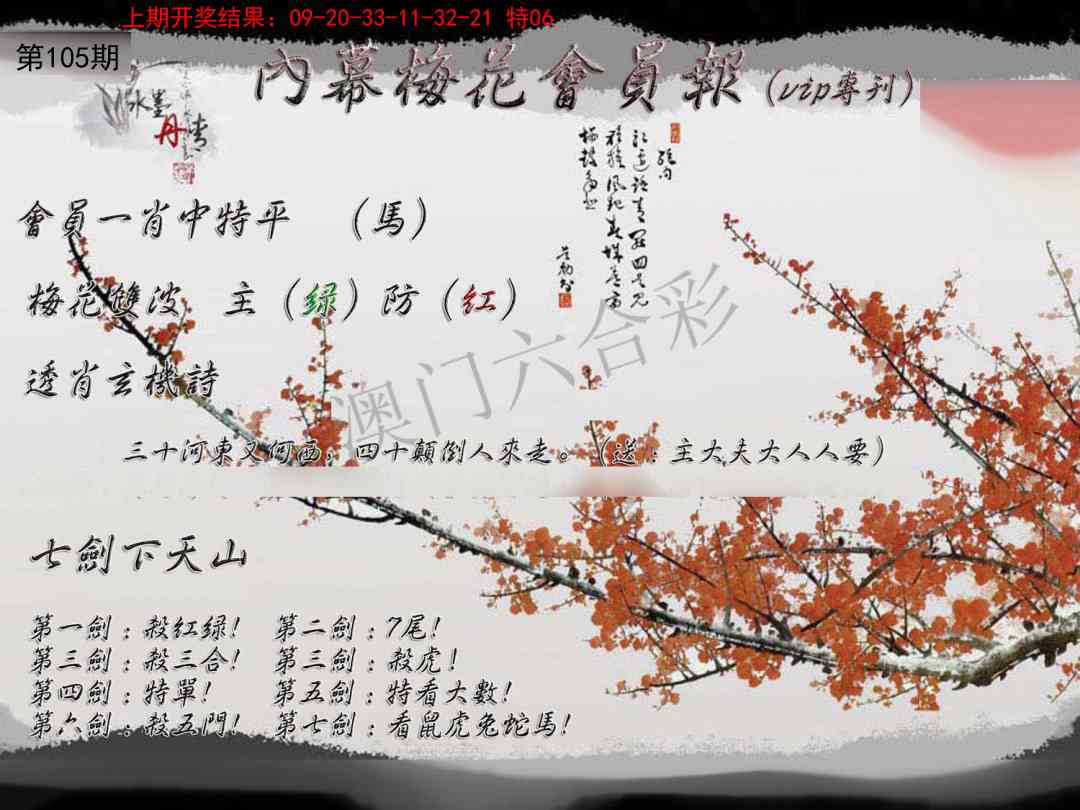 上期开奖结果：09-20-33-11-32-21 特06
第105期
內幕梅花會員報（vip專刊）
水墨
丹青
會員一肖中特平 （馬）
梅花雙波 主（绿）防（红）
透肖玄機詩
澳门六合彩
三十河東又何西，四十顛倒人來走。（送：主大夫大人人要）
七劍下天山
第一劍：殺红绿！ 第二劍：7尾！
第三劍：殺三合！ 第三劍：殺虎！
第四劍：特單！ 第五劍：特看大數！
第六劍：殺五門！ 第七劍：看鼠虎兔蛇馬！